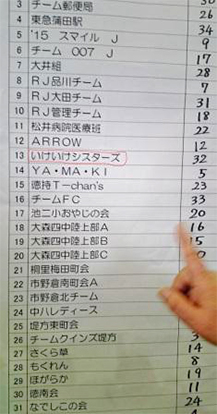 3 チーム郵便局
4 東急蒲田駅 26
5 '15 スマイル J 34
6 チーム 007 J 9
7 大井組 17
8 RJ品川チーム 28
9 RJ大田チーム 31
10 RJ管理チーム 18
11 松井病院医療班 22
12 ARROW 12
13 いけいけシスターズ 32
14 YA・MA・KI 5
15 徳持T-chan's 23
16 チームFC 33
17 池二小おやじの会 20
18 大森四中陸上部A 16
19 大森四中陸上部B 15
20 大森四中陸上部C
21 桐里梅田町会
22 市野倉南町会A
23 市野倉北チーム
24 中ハレディース
25 堤方東町会
26 チームクインズ堤方
27 さくら草 14
28 もくれん 8
29 ほがらか 19
30 徳南会 11
31 なでしこの会 24